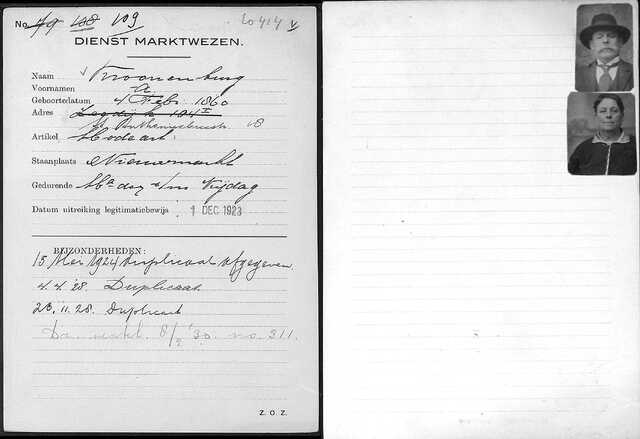 No. 49 108 109 60414 V
DIENST MARKTWEZEN.
Naam Kroonenburg
Voornamen A
Geboortedatum 4 Feb. 1860
Adres Zeedijk 104 I
St. Anthoniebreestr. 18
Artikel
Staanplaats Nieuwmarkt
Gedurende Ma dag t/m Vrijdag
Datum uitreiking legitimatiebewijs 1 DEC 1923
BIJZONDERHEDEN:
15 Mei 1924 Duplicaat afgegeven
4.4.'28. Duplicaat
23.11.28. Duplicaat
8/2 '30. no. 311.
Z. O. Z.